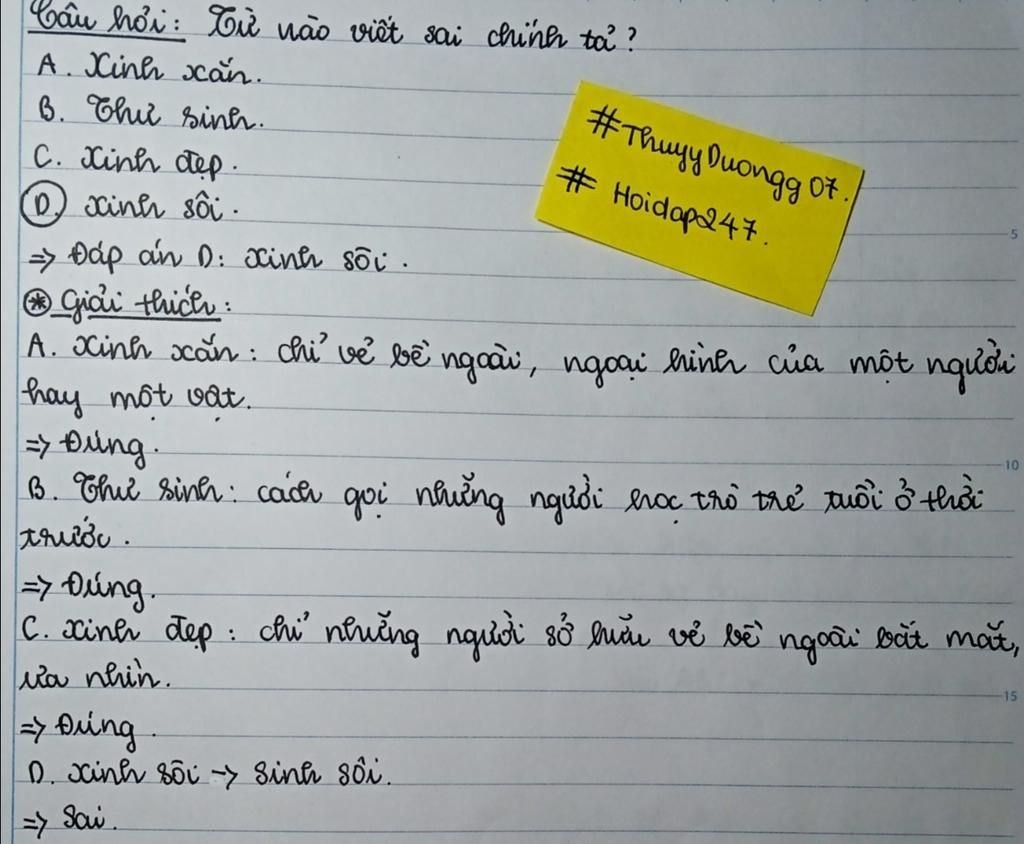 Câu hỏi: Từ nào viết sai chính tả?
A. Xinh xắn.
B. Thư sinh.
C. Xinh đẹp.
D. xinh sôi.
=> Đáp án D: xinh sôi.
* Giải thích:
A. Xinh xắn: chỉ vẻ bề ngoài, ngoại hình của một người
hay một vật.
=> Đúng.
B. Thư sinh: cách gọi những người học trò trẻ tuổi ở thời
trước.
=> Đúng.
C. xinh đẹp: chỉ những người sở hữu vẻ bề ngoài bắt mắt,
ưa nhìn.
=> Đúng.
D. xinh sôi -> sinh sôi.
=> Sai.
#ThuyyDuongg07.
# Hoidap247.